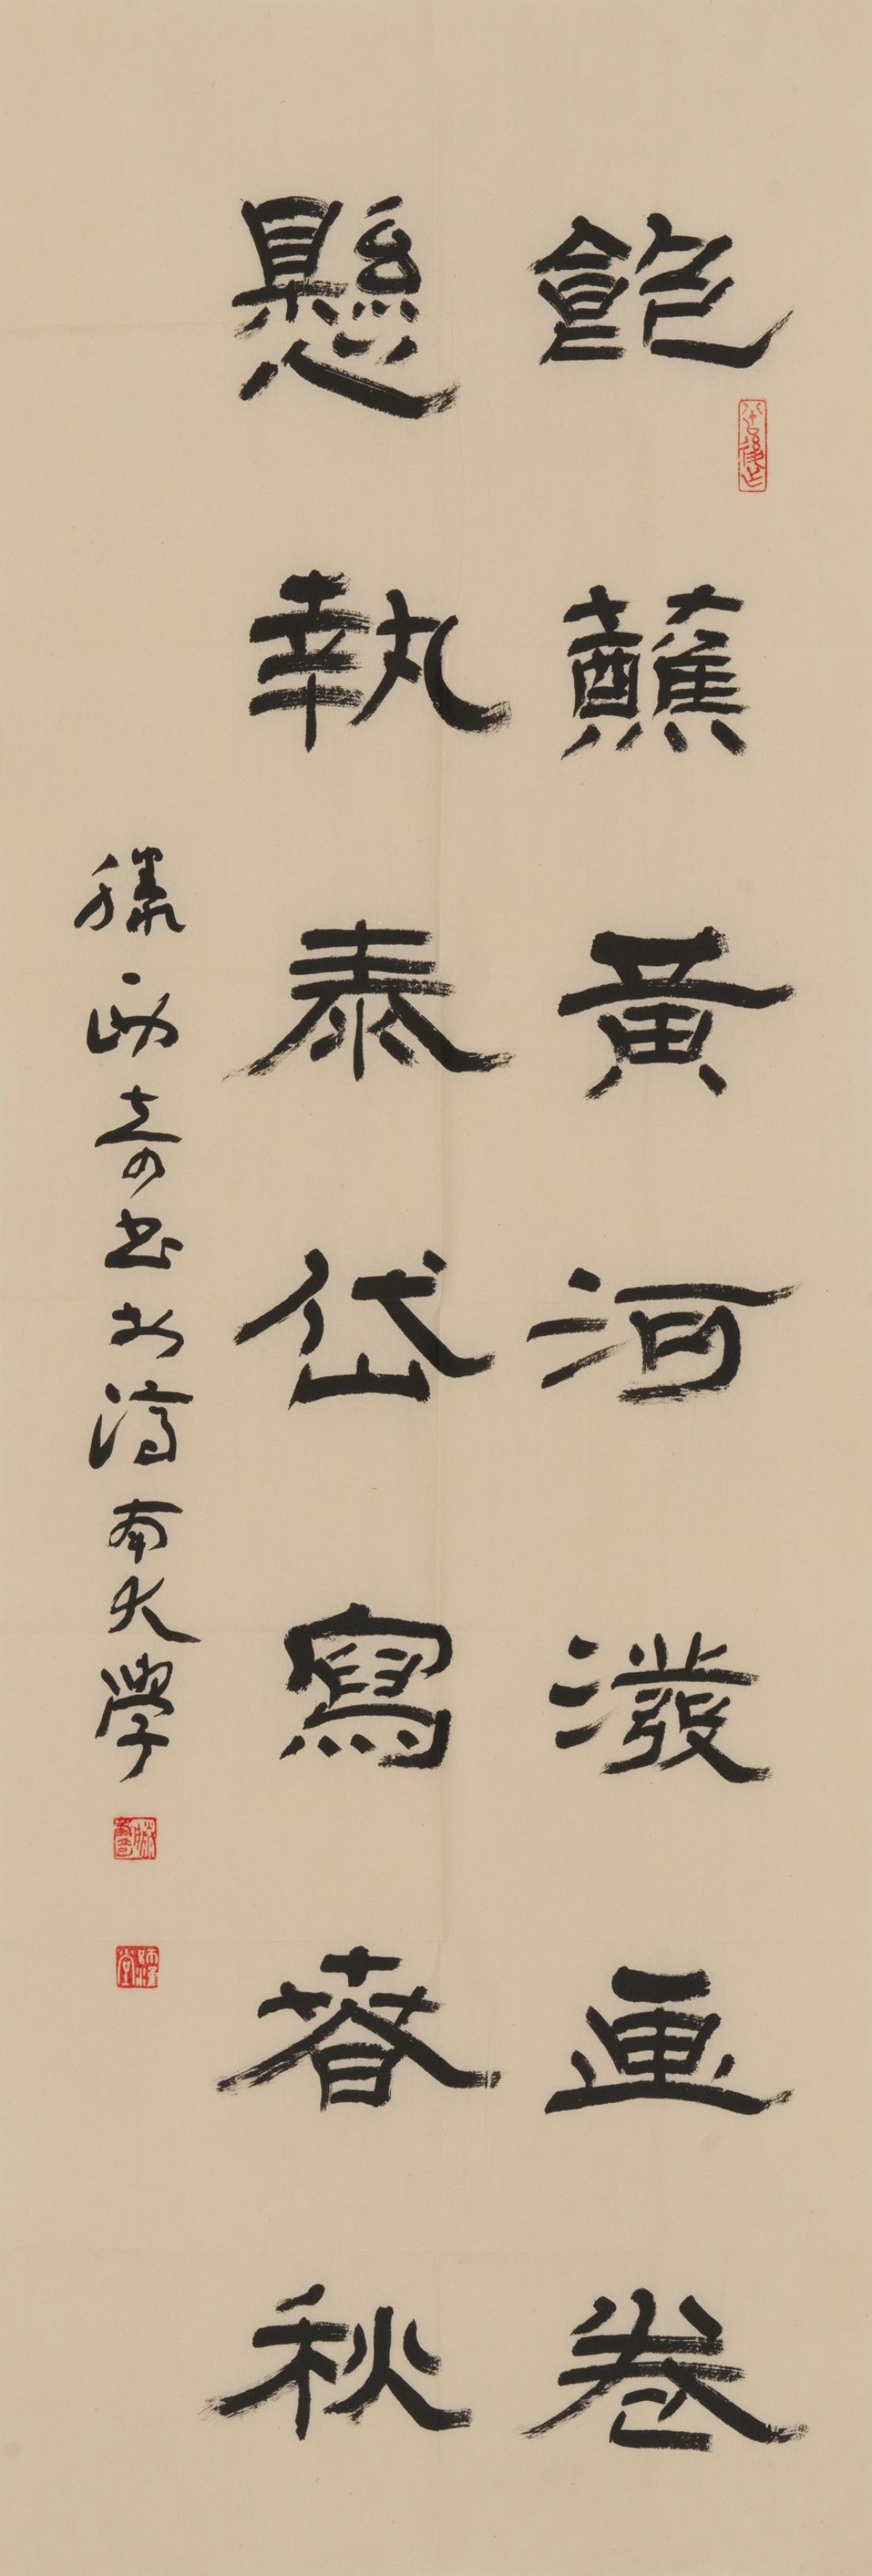 飽蘸黃河潑画卷
懸執泰岱寫春秋
書於濟南大學